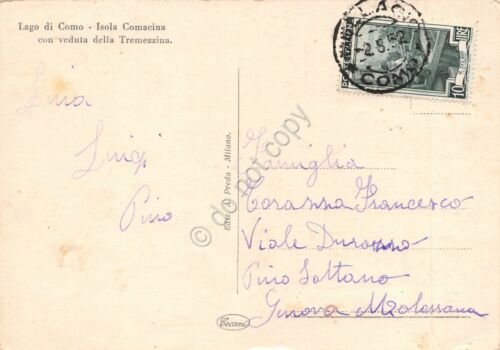 Lago di Como - Isola Comacina
con veduta della Tremezzina.
Livia
Luigi
Pino
Ediz. A. Preda - Milano.
Cecami
LAG
COMO
10 LIRE
Famiglia
Corazza Francesco
Viale Durazzo
Pino Sottano
Genova Molassana
do not copy